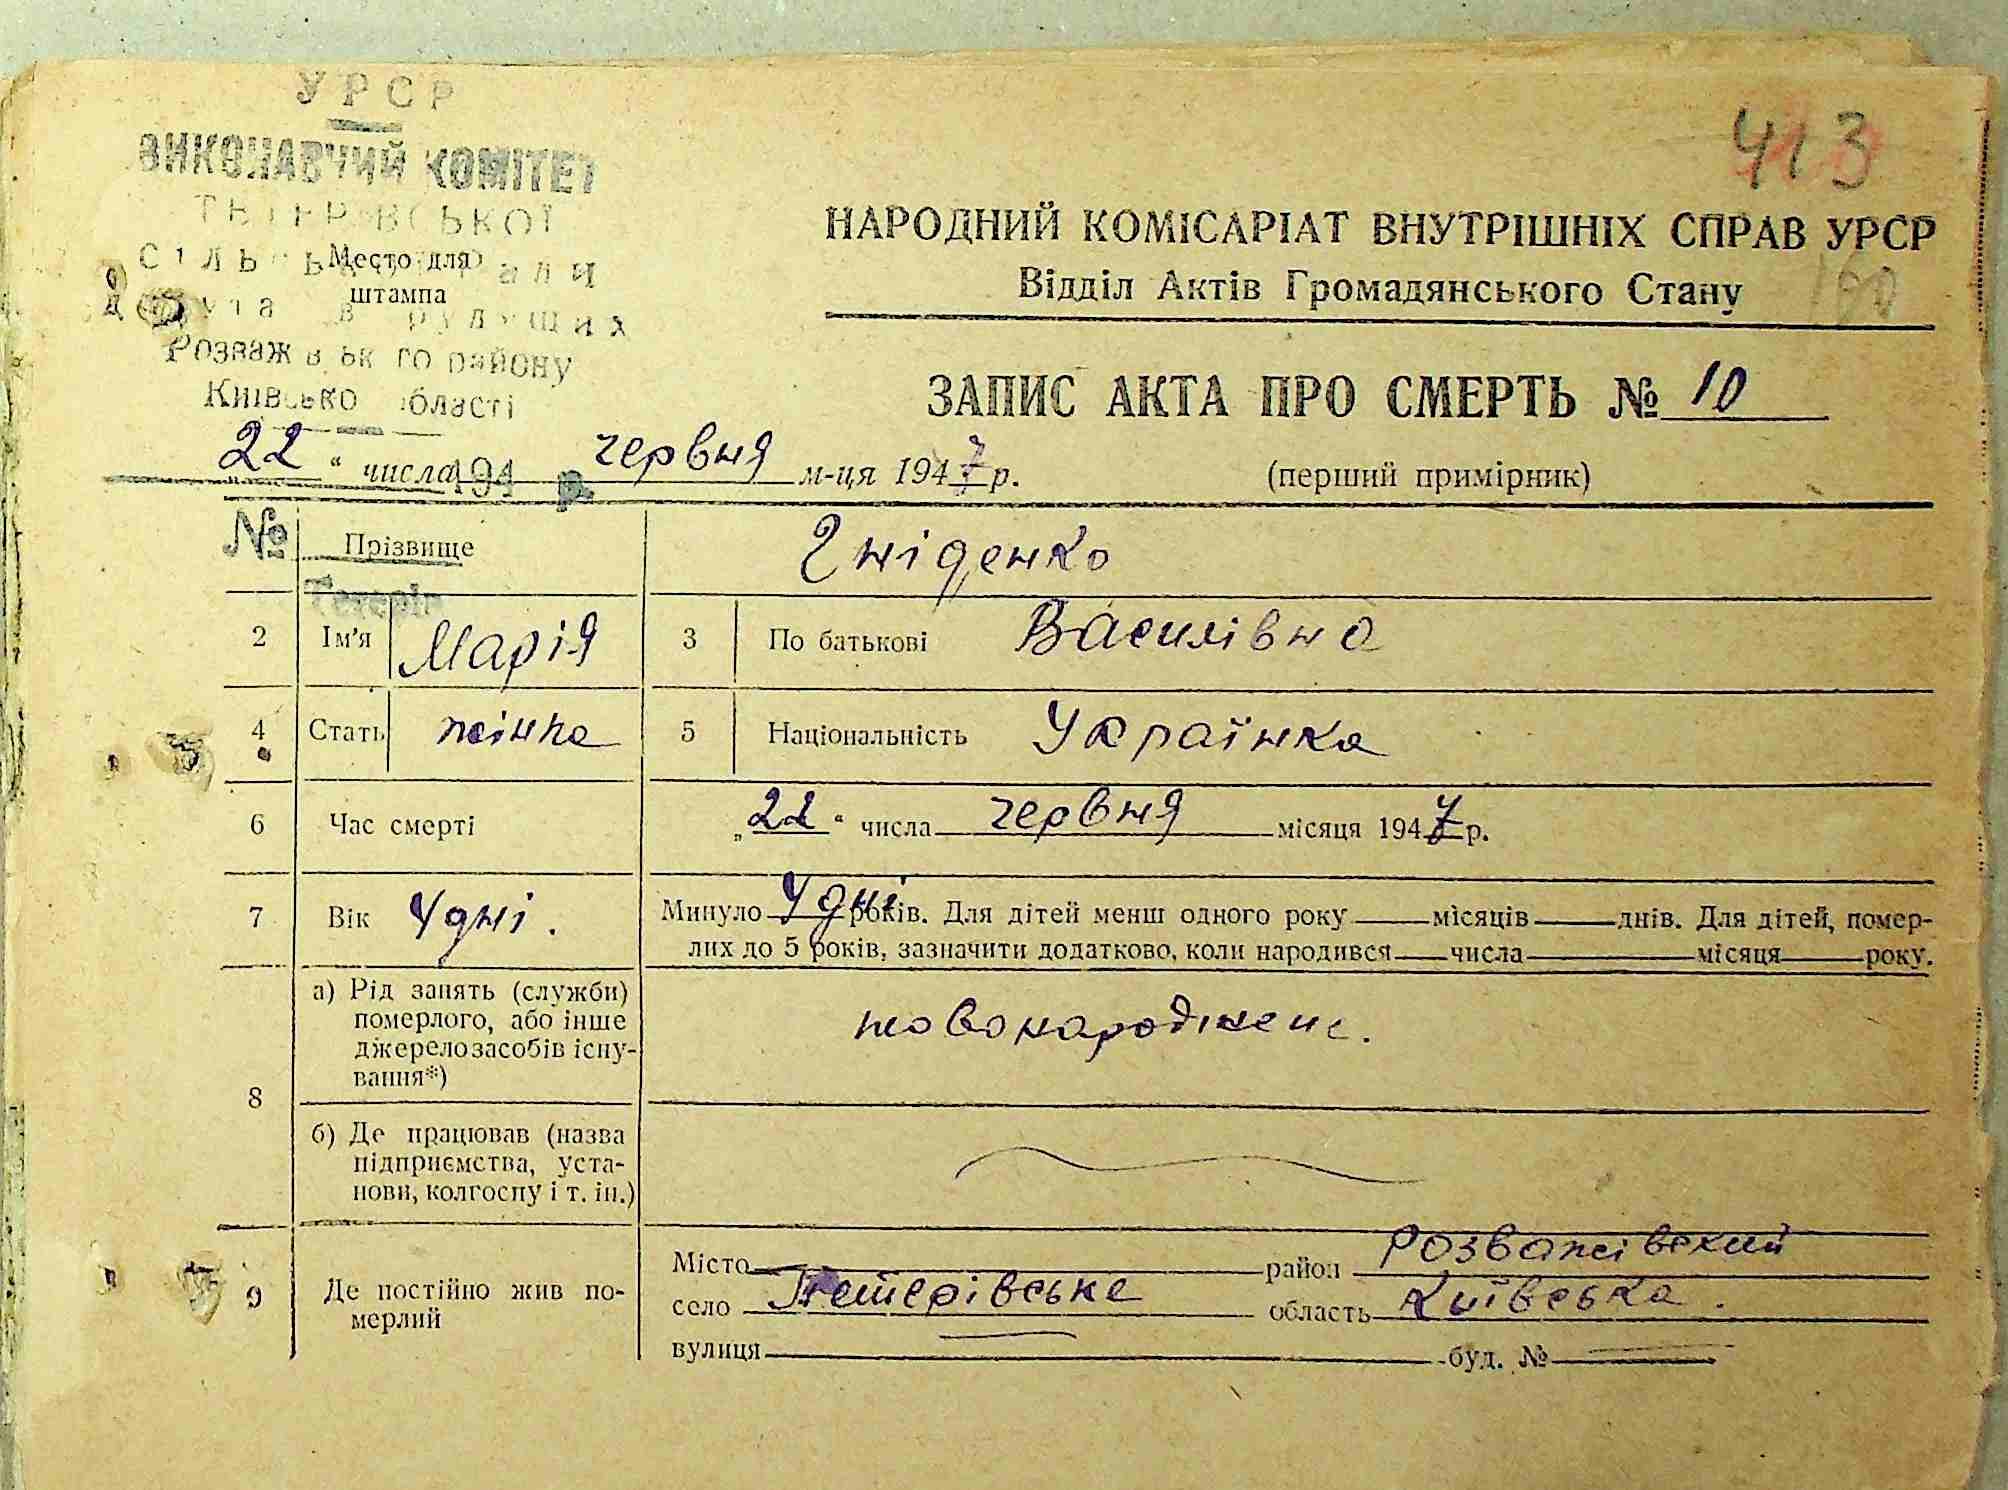 413
УРСР
ВИКОНАВЧИЙ КОМІТЕТ
ТЕТЕРІВСЬКОЇ
Место для
штампа
Розважівського району
Київсько області
НАРОДНИЙ КОМІСАРІАТ ВНУТРІШНІХ СПРАВ УРСР
Відділ Актів Громадянського Стану
ЗАПИС АКТА ПРО СМЕРТЬ № 10
22 “ числа 194 р. червня м-ця 1947 р.
(перший примірник)
№ Прізвище Гніденко
Тетерів
2 Ім’я Марія 3 По батькові Василівна
4 Стать жінка 5 Національність Українка
6 Час смерті „22“ числа червня місяця 1947 р.
7 Вік 4 дні. Минуло 4 дні років. Для дітей менш одного року місяців днів. Для дітей, помер-
лих до 5 років, зазначити додатково, коли народився числа місяця року.
8 а) Рід занять (служби)
померлого, або інше
джерело засобів існу-
вання*)
новонароджене.
б) Де працював (назва
підприємства, уста-
нови, колгоспу і т. ін.)
9 Де постійно жив по-
мерлий
Місто район Розважівский
село Тетерівське область Київська.
вулиця буд. №